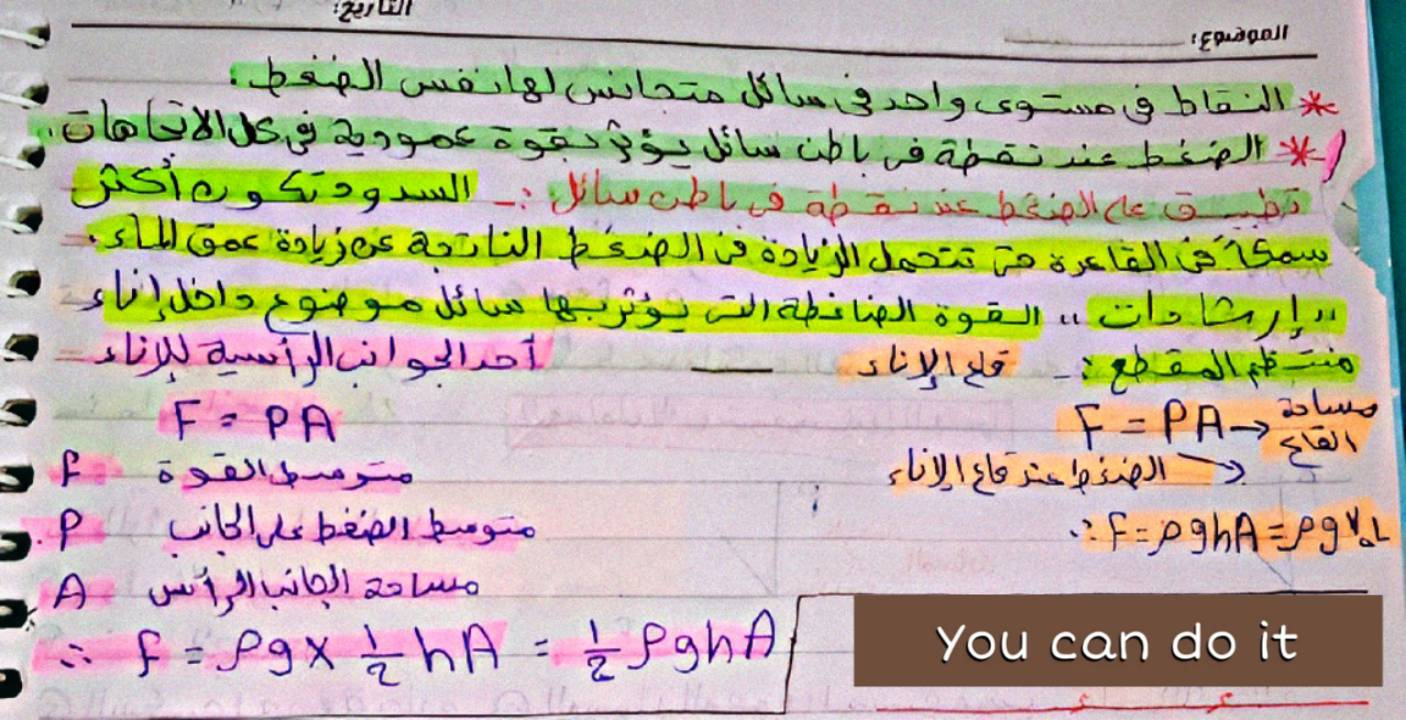 التاريخ:
الموضوع:
* النقاط في مستوى واحد في سائل متجانس لها نفس الضغط.
* الضغط عند نقطة في باطن سائل يؤثر بقوة عمودية في كل الاتجاهات.
تطبيق على الضغط عند نقطة في باطن سائل :- السدود تكون أكثر
سمكاً في القاعدة حتى تتحمل الزيادة في الضغط الناتجة عن زيادة عمق الماء.
"إرشادات" القوة الضاغطة التى يؤثر بها سائل موضوع داخل إناء
منتظم المقطع :- قاع الإناء — أحد الجوانب الرأسية للإناء
F = PA → مساحة القاع
الضغط عند قاع الإناء
∴ F = ρghA = ρgVoL
F = PA
F متوسط القوة
P متوسط الضغط على الجانب
A مساحة الجانب الرأسى
∴ F = ρg x 1/2 hA = 1/2 ρghA
You can do it